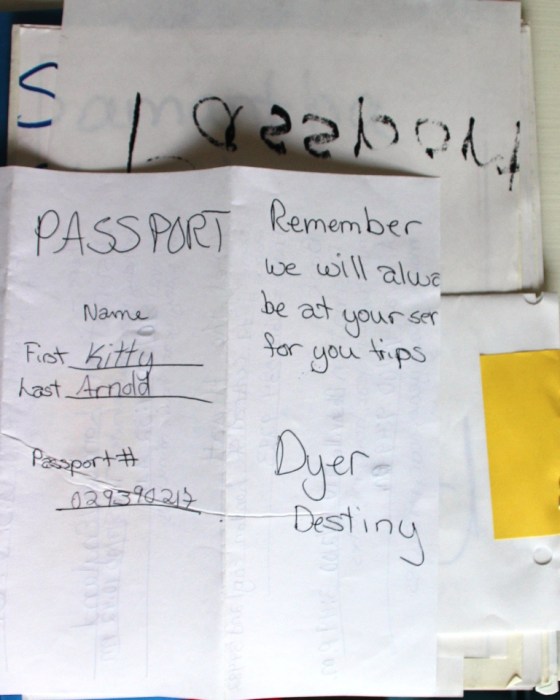 S
passport
PASSPORT
Name
First Kitty
Last Arnold
Passport#
029390217
Remember
we will alwa
be at your ser
for you trips
Dyer
Destiny